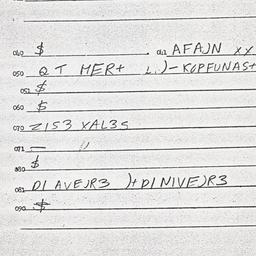 040 $ 041 AFAJN XX
050 Q T MER+ L.)-KOPFUNAS+
051 $
060 $
070 Z1S3 XAL3S
071 — "
080 $
081 DI AVEJR3 )+DINIVEJR3
090 $